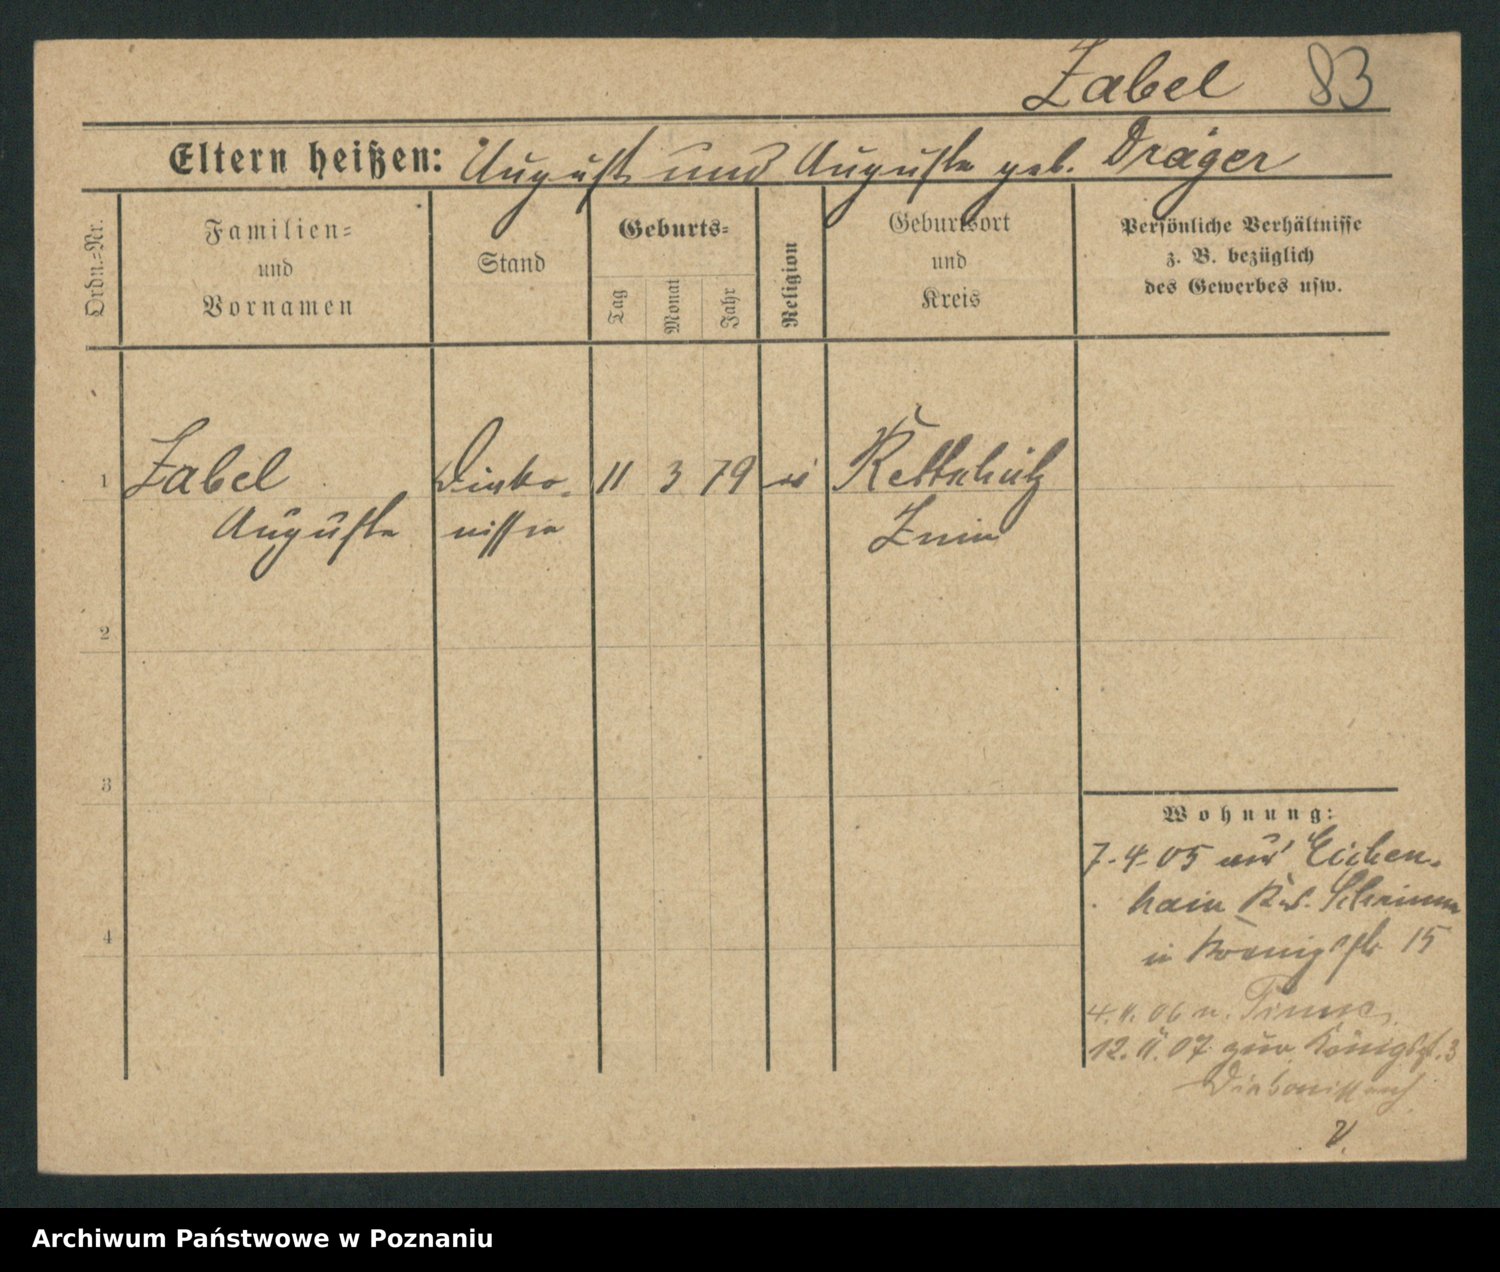 Zabel 83
Eltern heißen: August und Auguste geb. Dräger
Ordn.=Nr.
Familien=
und
Vornamen
Stand
Geburts=
Tag
Monat
Jahr
Religion
Geburtsort
und
Kreis
Persönliche Verhältnisse
z. B. bezüglich
des Gewerbes usw.
1 Zabel Diako- 11 3 79
Auguste nissin Znin
2
3
4
Wohnung:
7.4.05 aus Eichen-
hain Krs. Schrimm
in Koenigstr 15
4. 11. 06 n.
12. 11. 07 zur Königspl. 3
Archiwum Państwowe w Poznaniu